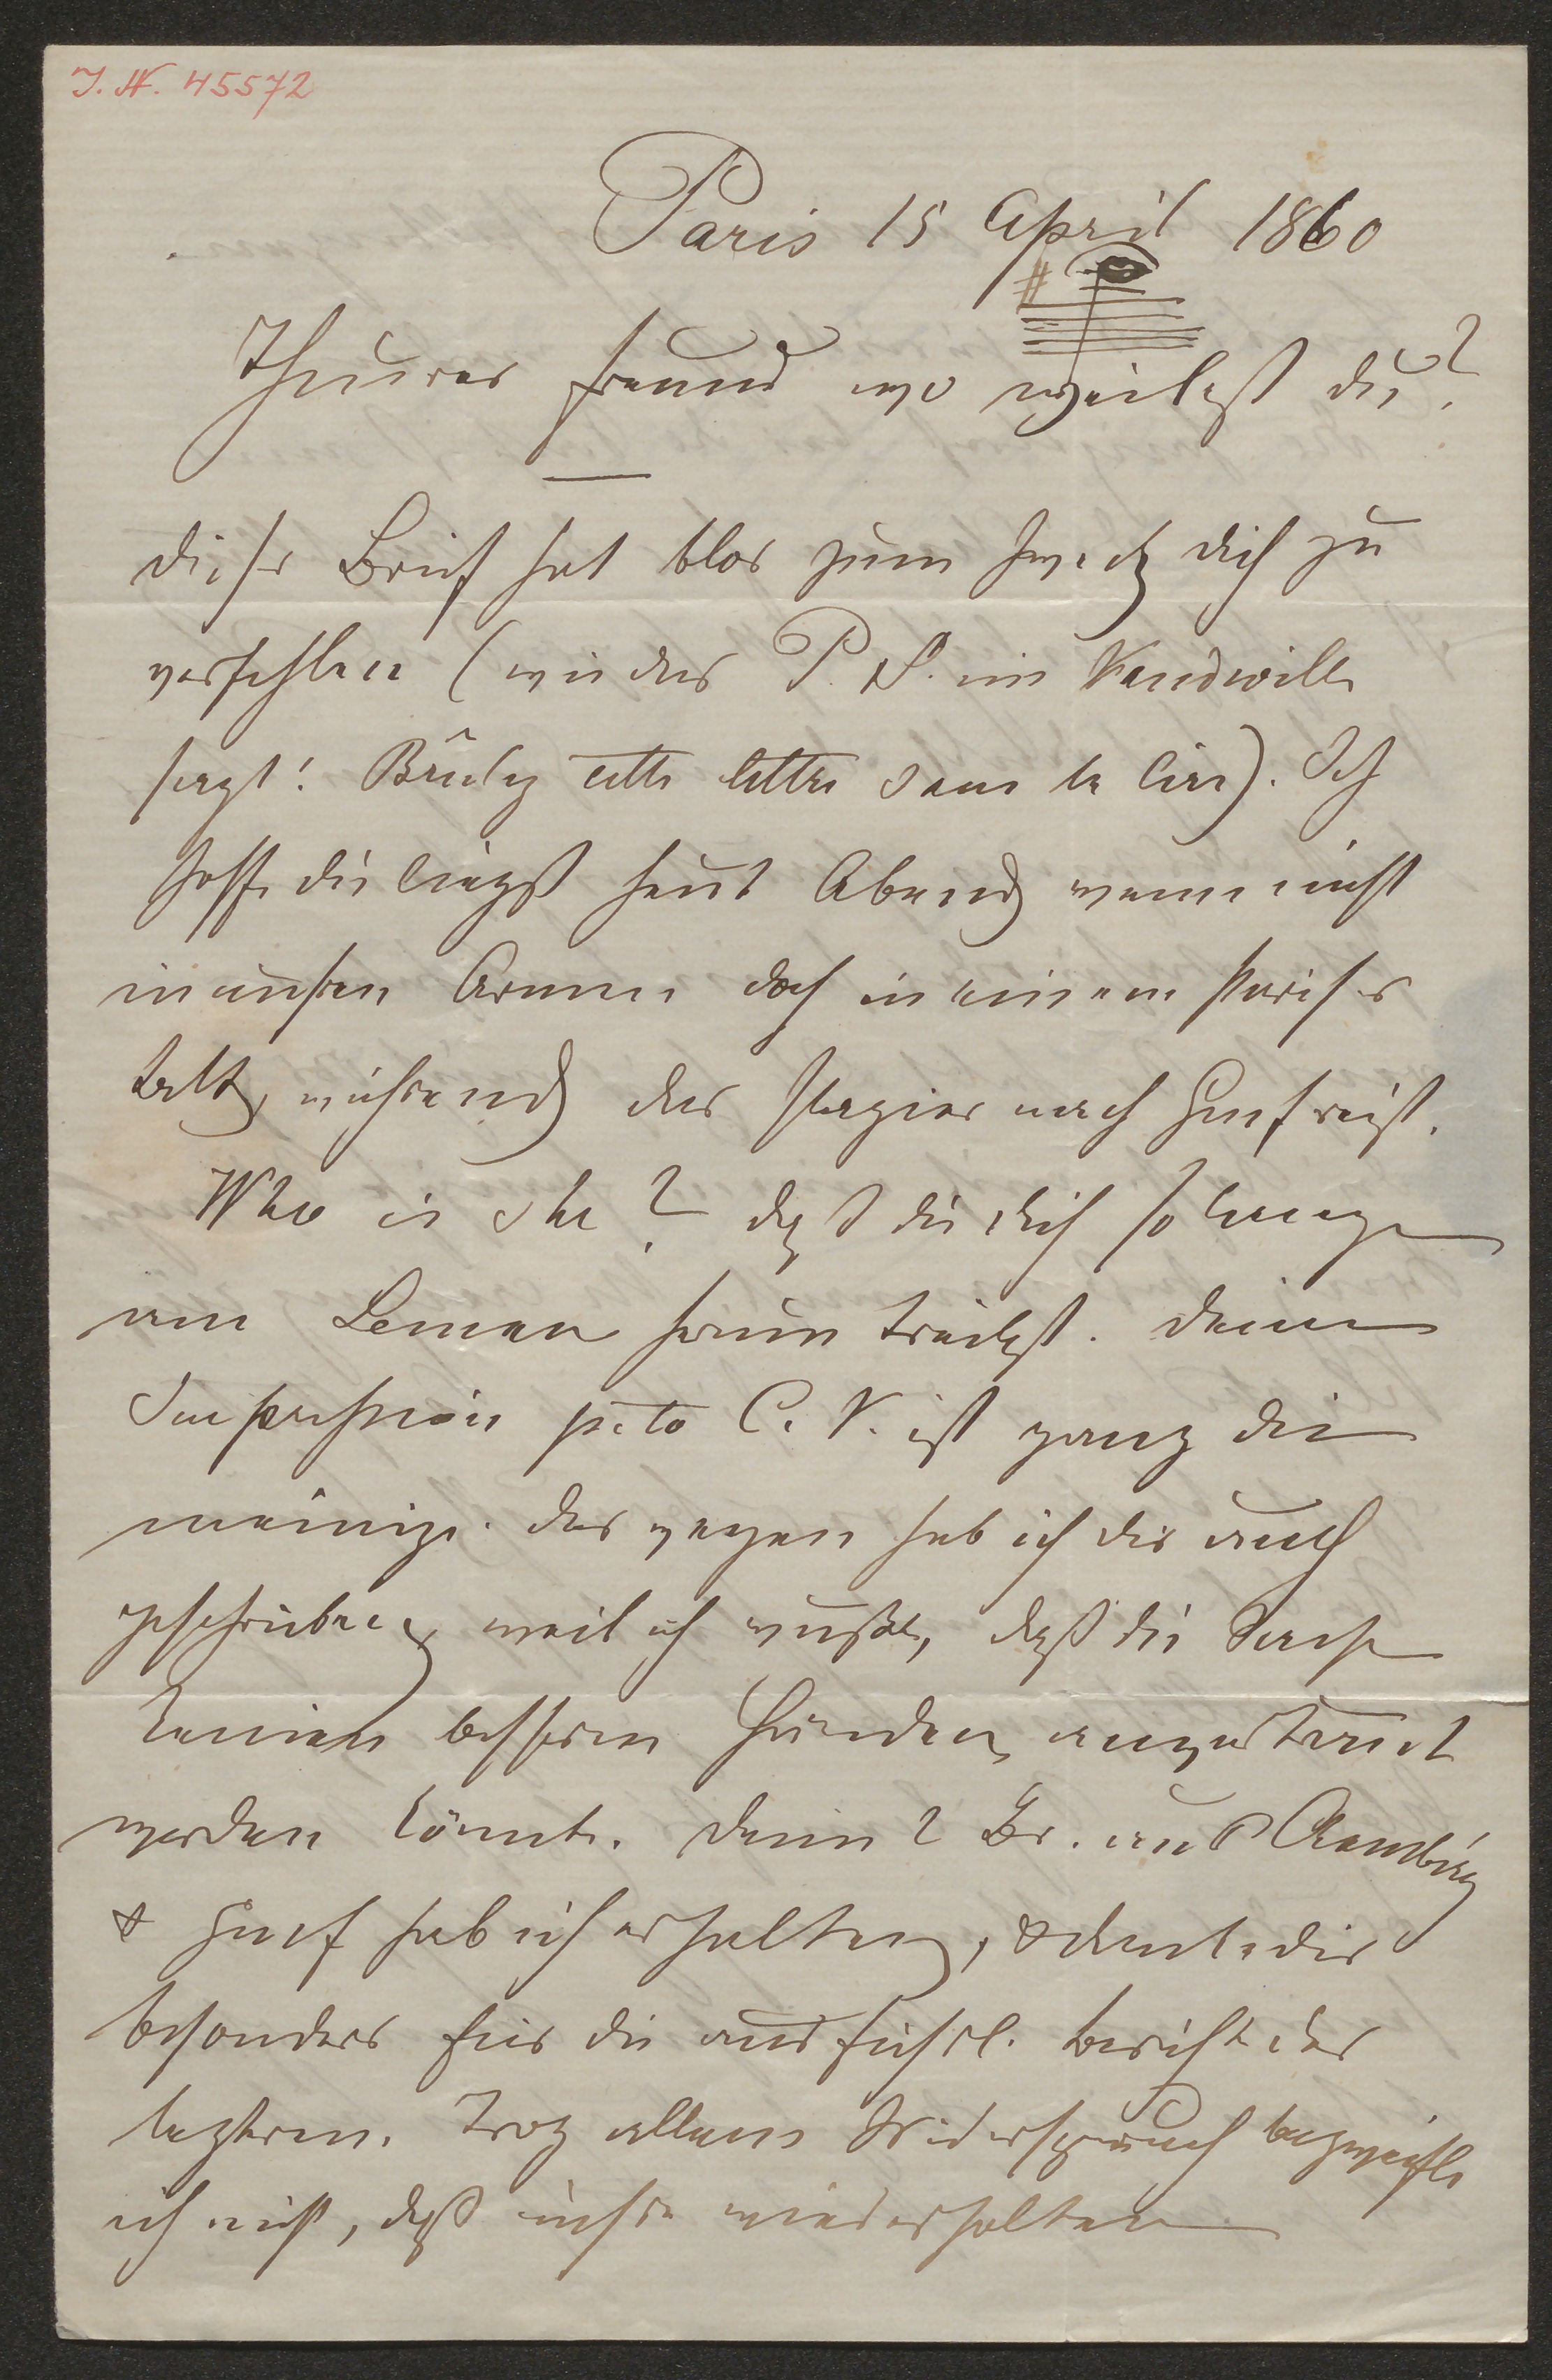 I. N. 45572
Paris 15 April 1860
Theurer Freund wo weilest du?
dieser Brief hat blos zum Zweck dich zu
verfehlen (wie das P. S. im Vaudeville
sagt: Brûlez cette lettre sans la lire). Ich
hoffe du liegst heut Abend wenn nicht
in unsren Armen doch in einem Pariser
Bett, während das Papier nach Genf reist.
Who is she? daß du dich so lange
am Leman herum treibst. deine
Impression pcto C. V. ist ganz die
meinige. deswegen hab ich dir auch
geschrieben weil ich wußte, daß die Sache
keinen besseren Händen anvertraut
werden könnte. deine 2 Br. aus
& Genf hab ich erhalten, & danke dir
besonders für die ausführl. Berichte des
letzteren. Trotz allem Widerspruch bezweifle
ich nicht, daß unsre wiederholten